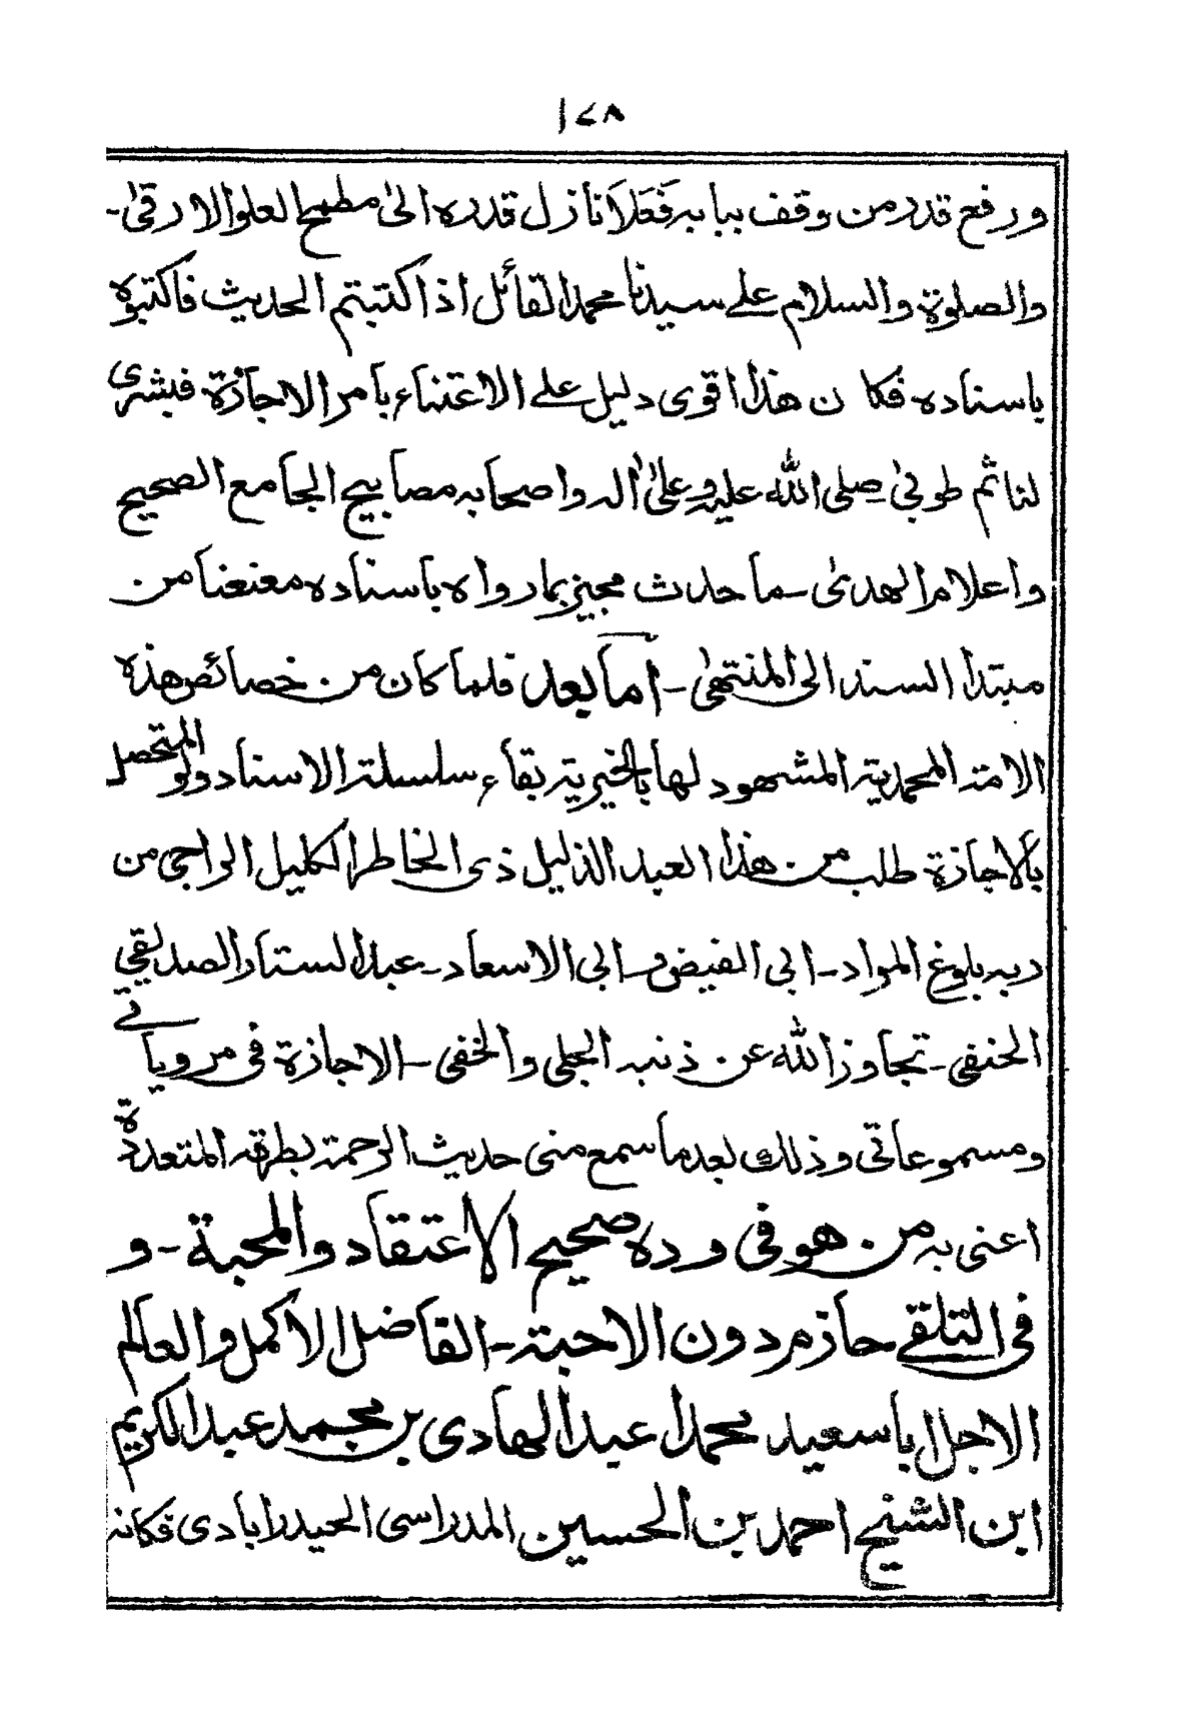 ١٤٨
ورفع قدر من وقف ببابه فَعَلَا نازل قدره الىٰ مطمح العلو الارقىٰ-
والصلوة والسلام علے سيدنا محمد القائل اذا كتبتم الحديث فاكتبوه
باسناده فكان هذا اقوى دليل علے الاعتناء بامر الاجازة فبشرى
لنا ثم طوبىٰ صلى الله عليه وعلىٰ اله واصحابه مصابيح الجامع الصحيح
واعلام الهدىٰ-ما حدث مجيز بما رواه باسناده معنعنا من
مبتدا السند الى المنتهىٰ- اما بعد فلما كان من خصائص هذه
الامة المحمدية المشهود لها بالخيرية بقاء سلسلة الاسناد ولو المتحصل
بالاجازة طلب من هذا العبد الذليل ذى الخاطر الكليل الراجى من
ربه بلوغ المراد-ابى الفيض و-ابى الاسعاد-عبد الستار الصديقي
الحنفى-تجاوز الله عن ذنبه الجلى والخفى-الاجازة فى مروياتے
ومسموعاتى وذلك بعد ما سمع منى حديث الرحمة بطرقه المتعددة
اعنى به من هو فى وده صحيح الاعتقاد والمحبة-و
فى التلقے حازم دون الاحبة-الفاضل الاكمل والعالم
الاجل ابا سعيد محمد عبد الهادى بن محمد عبد الكريم
ابن الشيخ احمد بن الحسين المدراسى الحيدرابادى فكانه